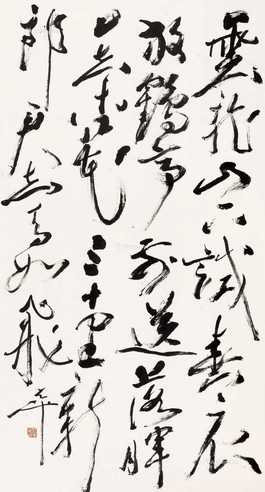 雲龍山下試春衣
放鶴亭前送落暉
一色杏花三十里新
郎君去馬如飛